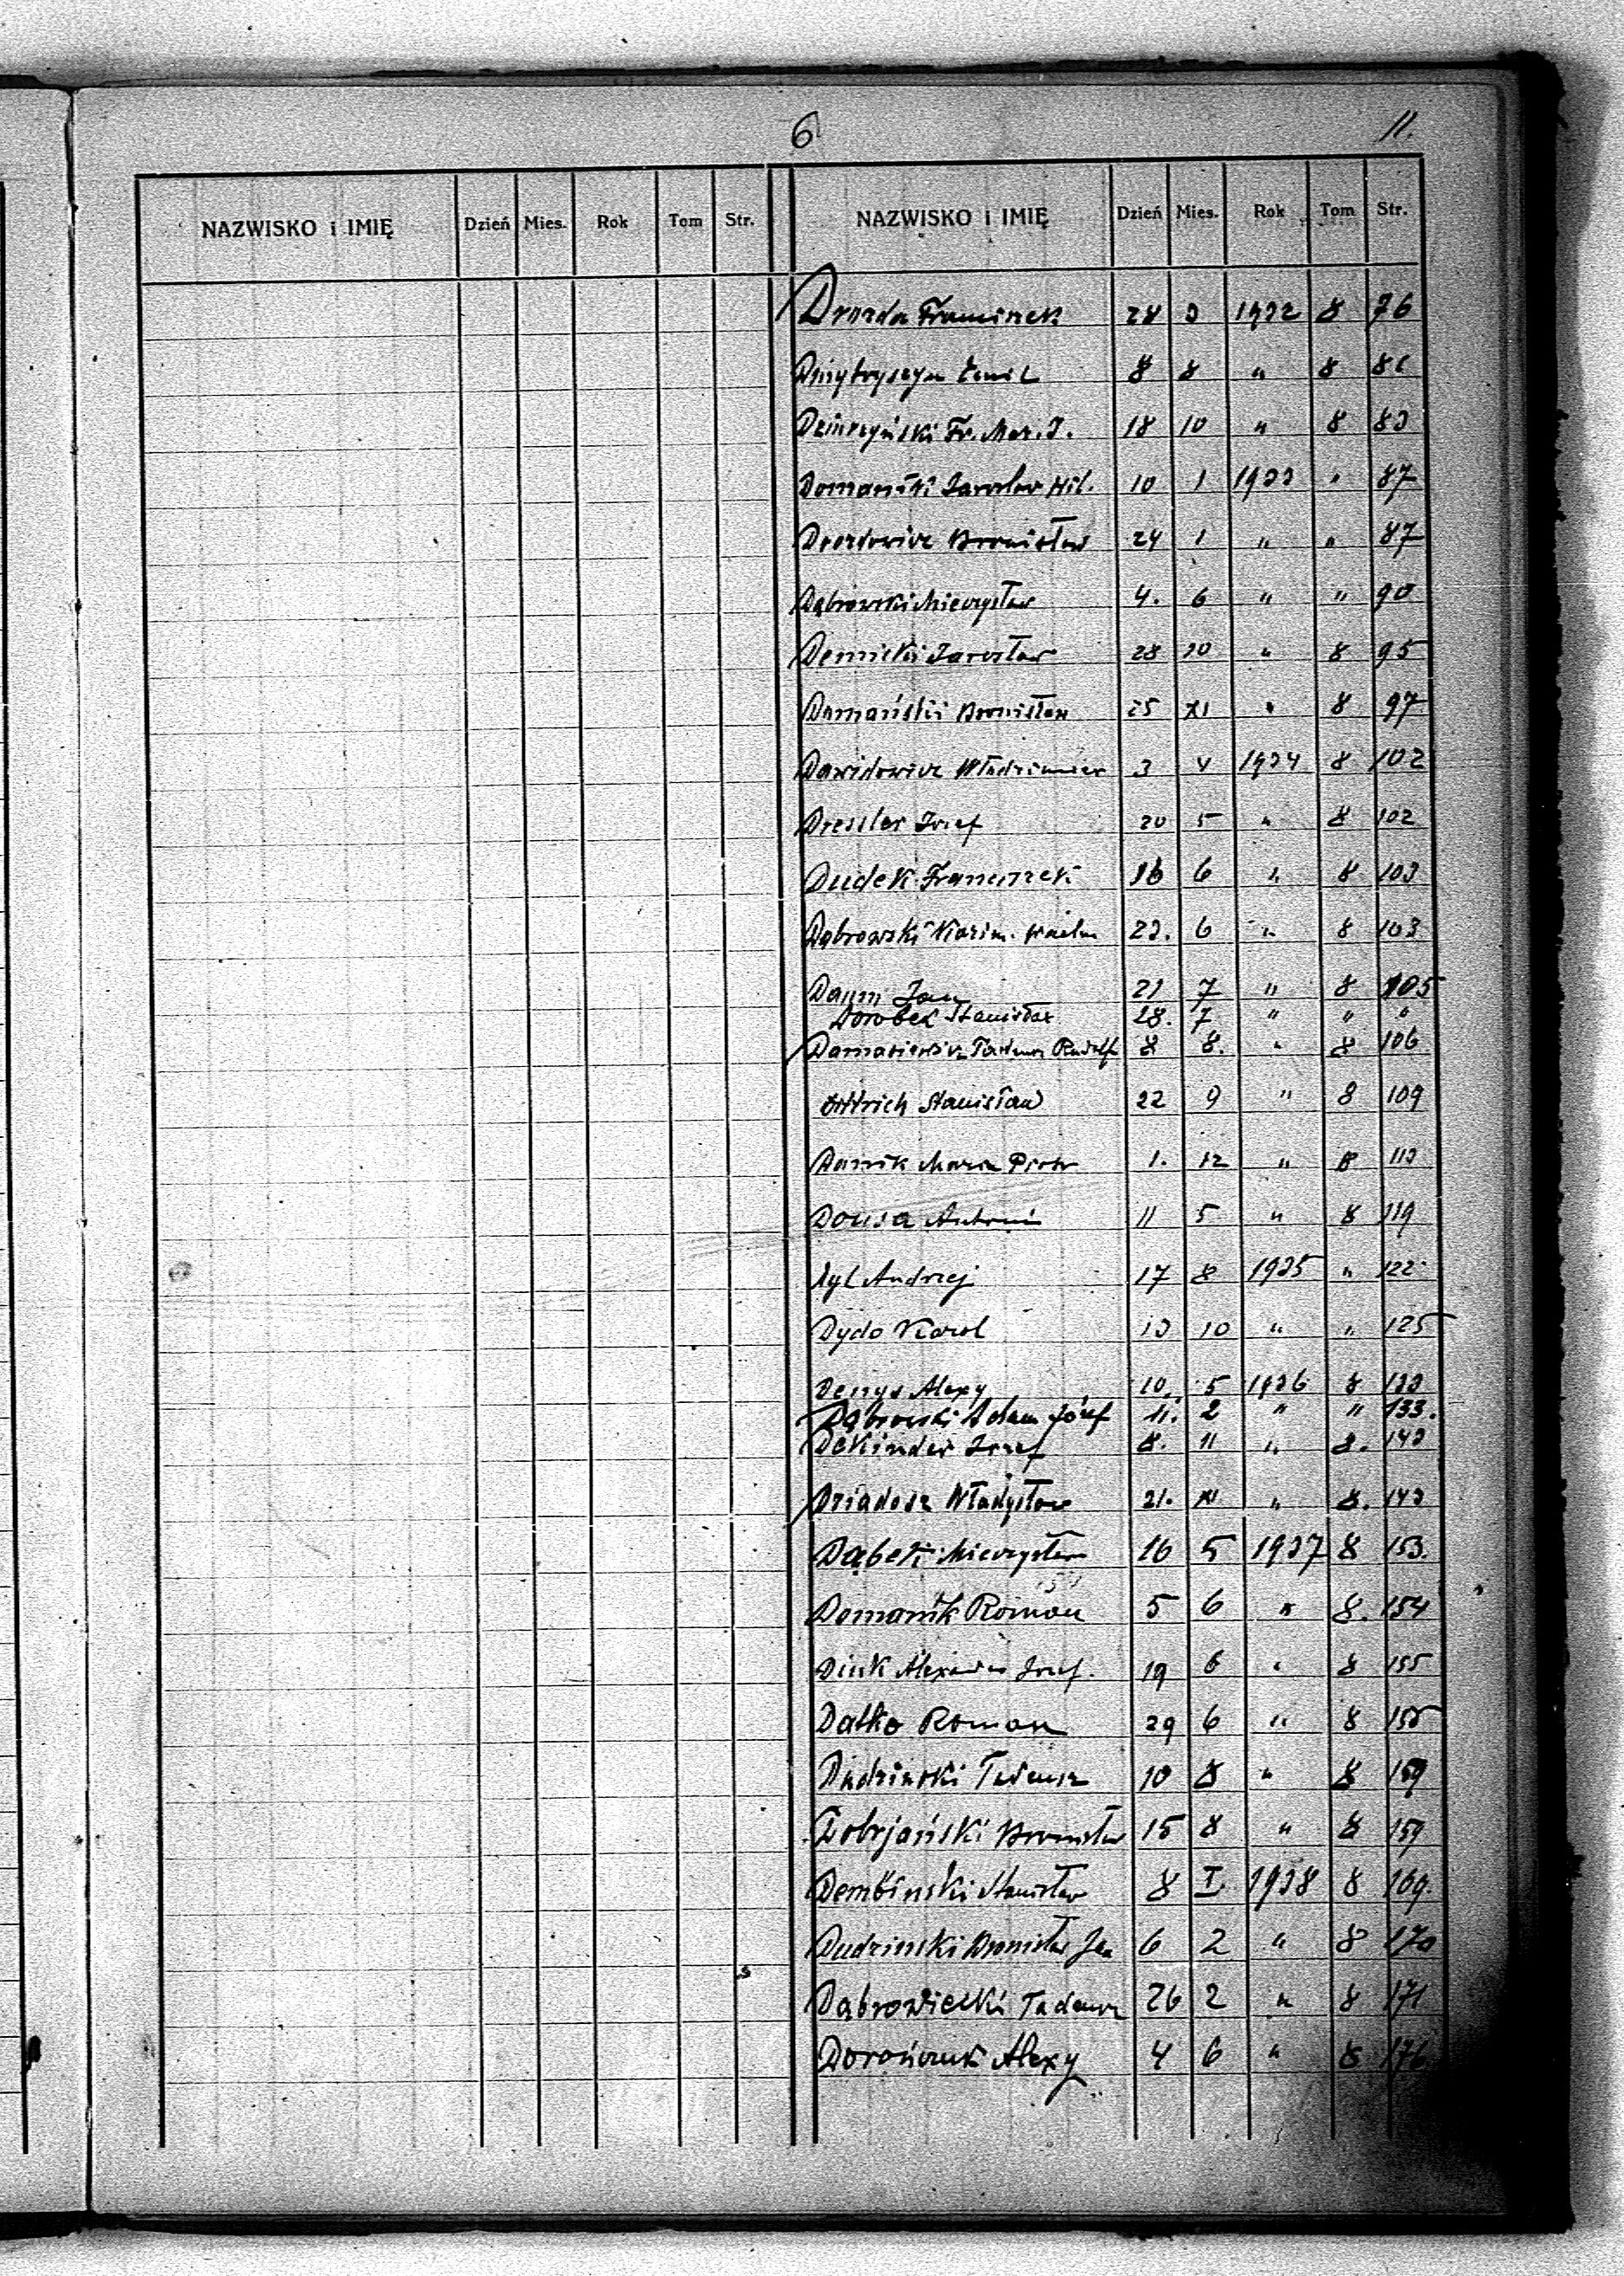 6
11.
NAZWISKO i IMIĘ Dzień Mies. Rok Tom Str. NAZWISKO i IMIĘ Dzień Mies. Rok Tom Str.
Drozda Franciszek 28 3 1932 8 76
Dmytryszyn Emil 8 8 " 8 81
Fr. Mar. J. 18 10 " 8 83
Domański Jarosław Hil. 10 1 1933 " 87
Drozdowicz Bronisław 24 1 " " 87
Dąbrowski Mieczysław 4. 6 " " 90
Demicki Jarosław 28 10 " 8 95
Domański Bronisław 25 XI " 8 97
Dawidowicz Włodzimierz 3 4 1934 8 102
Dressler Józef 20 5 " 8 102
Dudek Franciszek 16 6 " 8 103
Dąbrowski Kazim. 23. 6 " 8 103
Daum Jan 21 7 " 8 105
Dorobek Stanisław 28. 7 " " "
Damasiewicz Tadeusz Rudolf 8 8. " 8 106
Dittrich Stanisław 22 9 " 8 109
Marian Piotr 1. 12 " 8 113
Dousa Antoni 11 5 " 8 119
Dyl Andrzej 17 8 1935 " 122
Dydo Karol 13 10 " " 125
Denys Alexy 10. 5 1936 8 133
Dąbrowski Adam Józef 11. 2 " " 133.
Dekinder Józef 8. 11 " 8. 143
Dziadosz Władysław 21. XI " 8. 143
Dąbek Mieczysław 16 5 1937 8 153.
Domanik Roman 5 6 " 8. 154
Alexander Józef. 19 6 " 8 155
Datko Roman 29 6 " 8 155
Dudziński Tadeusz 10 8 " 8 159
Dobrjański Bronisław 15 8 " 8 159
Dembiński Stanisław 8 I. 1938 8 169.
Dudzinski Bronisław Jan 6 2 " 8 170
Dąbrowiecki Tadeusz 26 2 " 8 171
Dorończuk Alexy 4 6 " 8 176